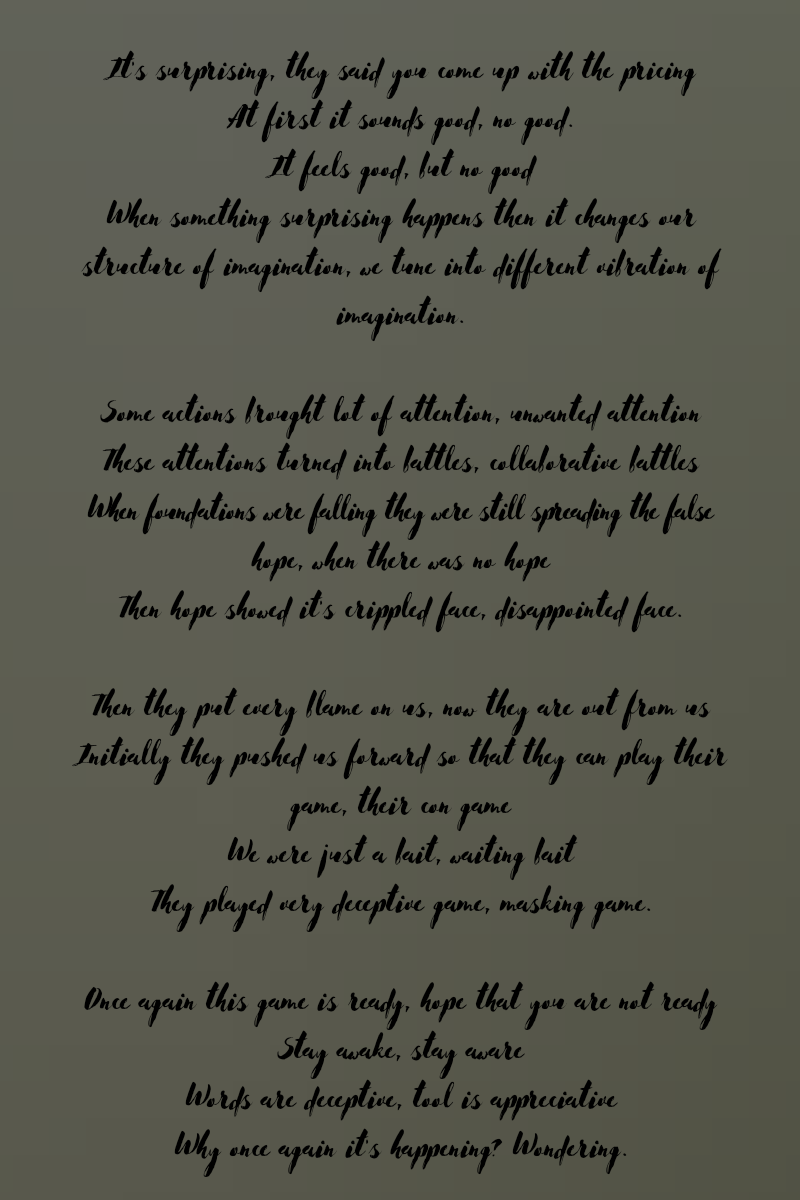 It's surprising, they said you come up with the pricing
At first it sounds good, no good.
It feels good, but no good
When something surprising happens then it changes our
structure of imagination, we tune into different vibration of
imagination.
Some actions brought lot of attention, unwanted attention
These attentions turned into battles, collaborative battles
When foundations were falling they were still spreading the false
hope, when there was no hope
Then hope showed it's crippled face, disappointed face.
Then they put every blame on us, now they are out from us
Initially they pushed us forward so that they can play their
game, their con game
We were just a bait, waiting bait
They played very deceptive game, masking game.
Once again this game is ready, hope that you are not ready
Stay awake, stay aware
Words are deceptive, tool is appreciative
Why once again it's happening? Wondering.